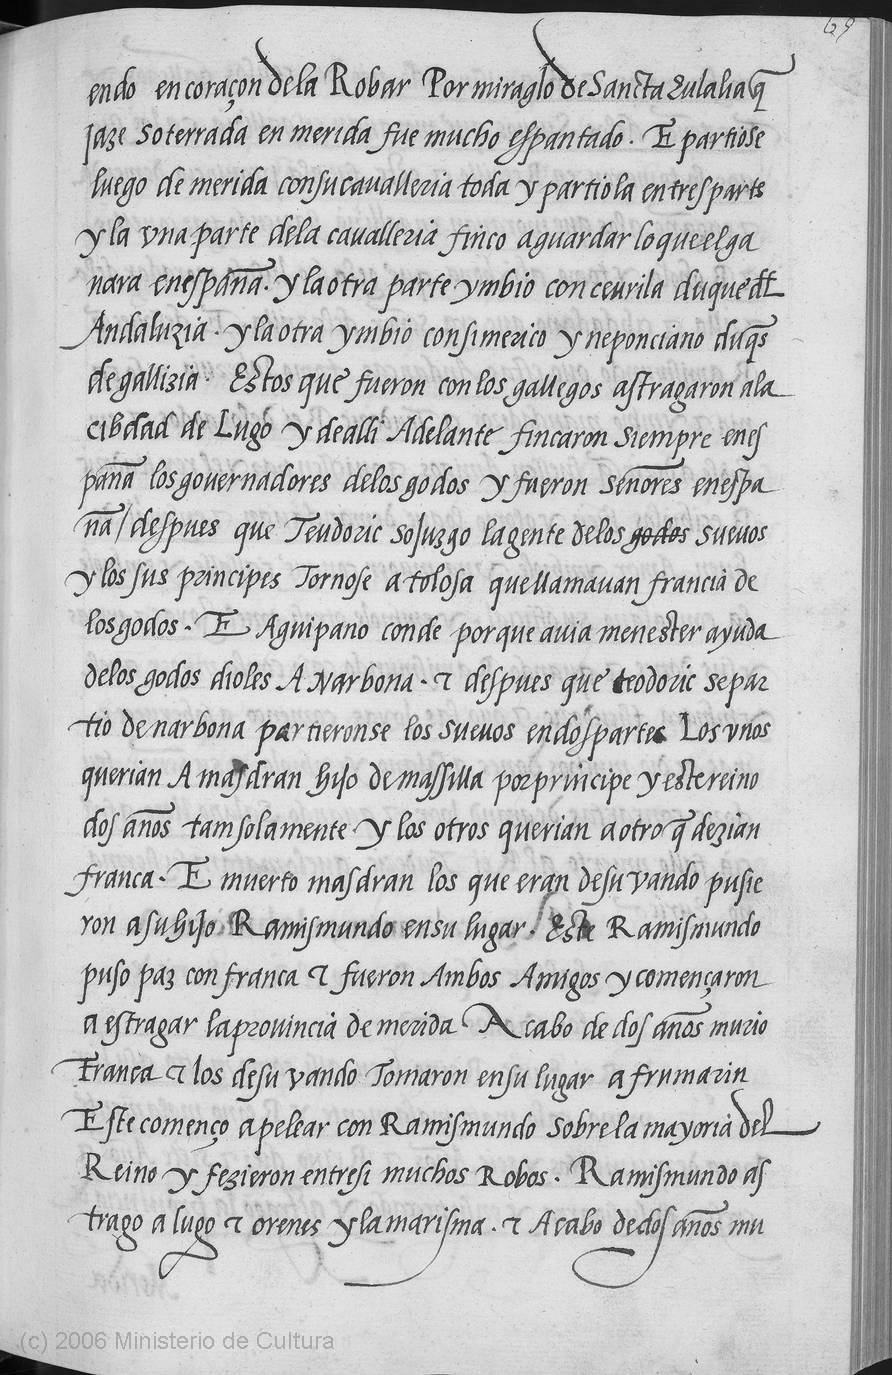 69
endo en coraçon de la Robar Por miraglo de Sancta Eulalia q̃
jaze soterrada en merida fue mucho espantado. E partiose
luego de merida con su cavalleria toda y partiola en tres partes
y la vna parte dela cavalleria finco aguardar lo que el ga
nara en españa. y la otra parte ymbio con cevrila duque dl
Andaluzia. y la otra ymbio con simerico y neponciano duq̃s
de gallizia. Estos que fueron con los gallegos astragaron ala
cibdad de Lugo y de alli Adelante fincaron siempre en es
paña los governadores delos godos y fueron señores en espa
ña / despues que Teudoric sojuzgo la gente delos godos suevos
y los sus principes Tornose a tolosa que llamavan francia de
los godos. E Aguipano conde porque avia menester ayuda
delos godos dioles A Narbona. & despues que teodoric se par
tio de narbona partieronse los suevos en dos partes Los vnos
querian A masdran hijo de massilla por principe y este reino
dos años tam solamente. y los otros querian a otro q̃ dezian
franca. E muerto masdran los que eran de su vando pusie
ron a su hijo Ramismundo en su lugar. Este Ramismundo
puso paz con franca & fueron Ambos Amigos y començaron
a estragar la provincia de merida. A cabo de dos años murio
França & los de su vando Tomaron en su lugar a frumarin
Este començo a pelear con Ramismundo sobre la mayoria del
Reino y fezieron entre si muchos Robos. Ramismundo as
trago a lugo & orenes y la marisma. & A cabo de dos años mu
(c) 2006 Ministerio de Cultura